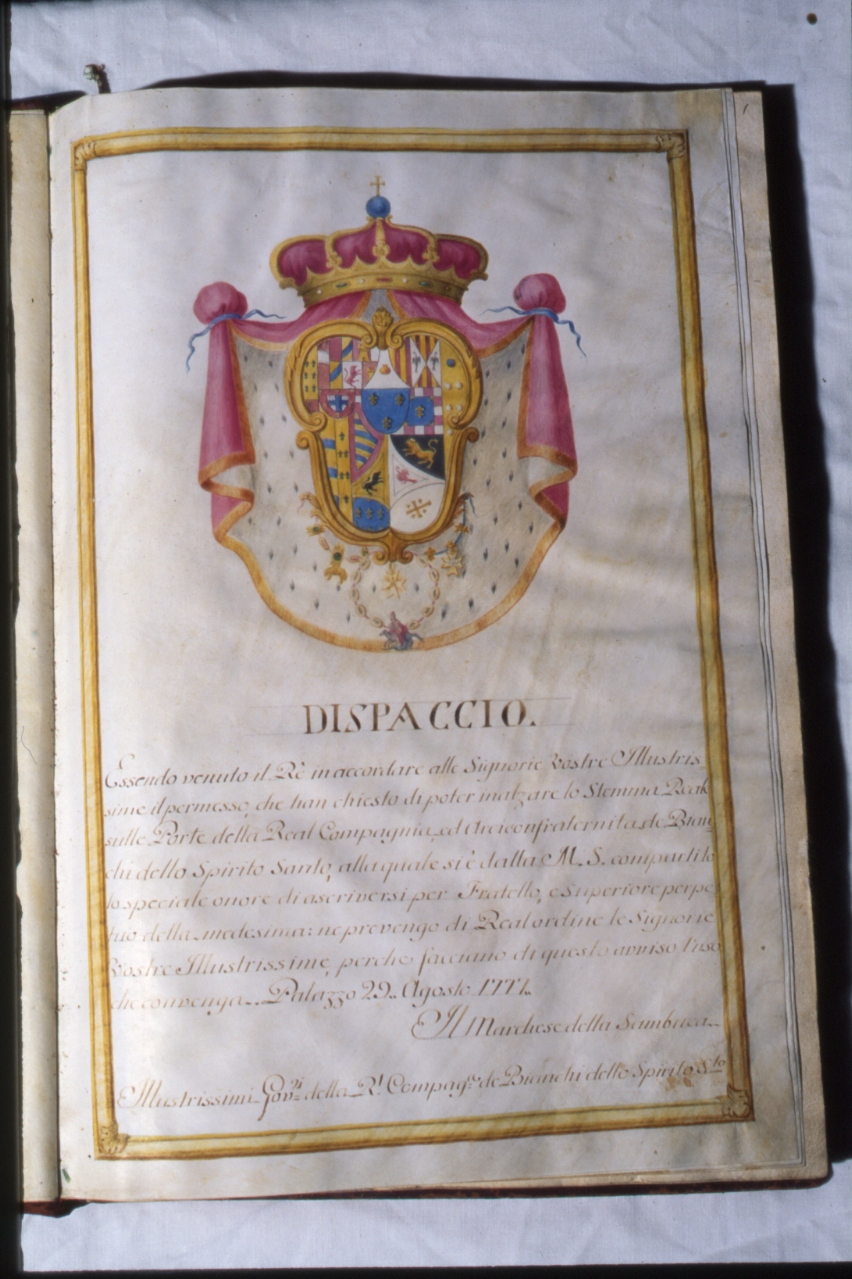 DISPACCIO.
Essendo venuto il Rè in accordare alle Signorie Vostre Illustris
sime il permesso, che han chiesto di poter inalzare lo Stemma Reale
sulle Porte della Real Compagnia, ed Arciconfraternita de Bian
chi dello Spirito Santo, alla quale si è dalla M. S. compartito
lo speciale onore di ascriversi per Fratello, e Superiore perpe
tuo della medesima: ne prevengo di Real ordine le Signorie
Vostre Illustrissime, perche facciano di questo avviso l'uso
che convenga.. Palazzo 29.. Agosto 1771..
Il Marchese della Sambuca..
Illustrissimi Gov.ri della R.l Compag.a de Bianchi dello Spirito S.to